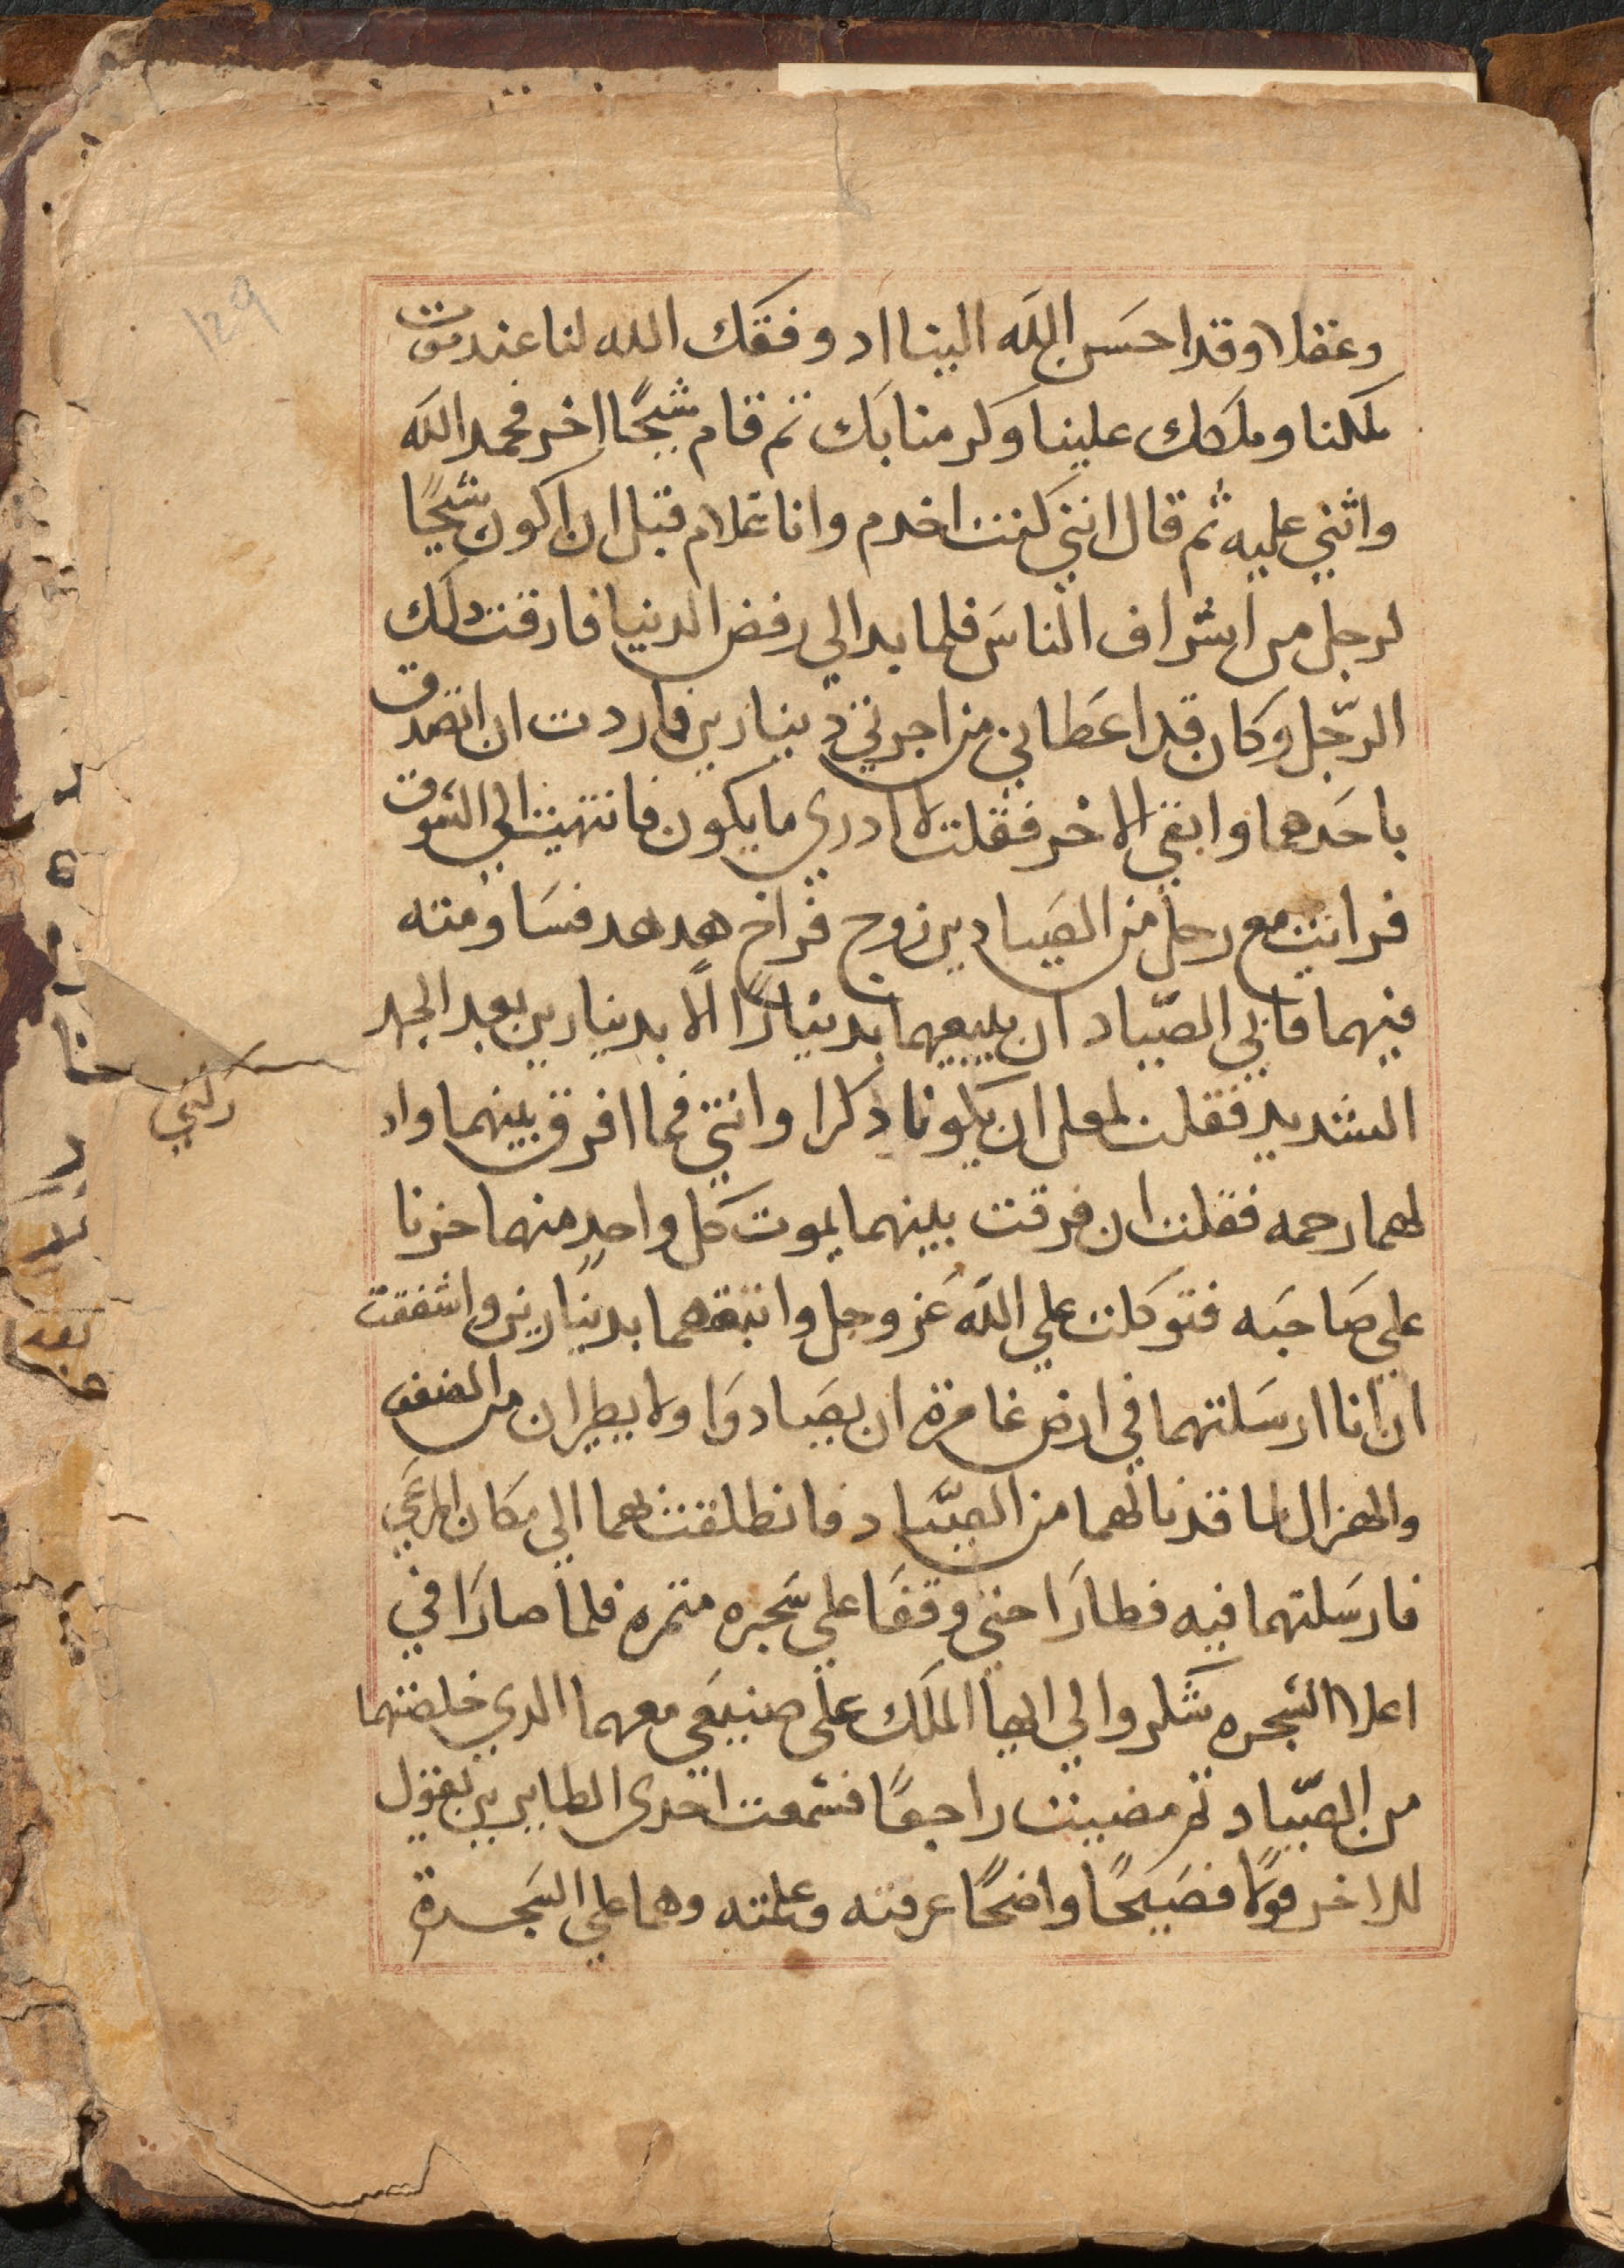 129
وعقلا وقد احسَن اللَه الينا اد وفقَك الله لنا عند موت
ملكنا وملكك علينا وكرمنا بَك ثم قام شيخًا اخر فحمد اللَه
واثني عليه ثم قال انني كنت اخدم وانا غلام قبل ان اكون شيخًا
لرجل من اشراف الناسَ فلما بدا لي رفض الدنيا فارقت دلك
الرّجل وكان قد اعَطاني من اجرتي دينارين فاردت ان اتصدق
باحَدهما وابقي الاخر فقلت لا ادري ما يكون فانتهيت الي السَوق
فرايت مع رجل من الصَيادين زوج فراخ هدهد فسَاومته
فيهما فابي الصّياد ان يبيعهما بدينارًا الا بدينارين بعد الجهد
الشديد فقلت لعل ان يكونا دكرا وانثي فما افرق بينهما واد
لهما رحمه فقلت ان فرقت بينهما يموت كل واحدٍ منهما حزنا
علي صَاحبَه فتوكلت علي اللَه عَز وجل وابتعتهما بدينارين واشفقت
ان انا ارسَلتهما في ارض عامرة ان يصَيادوَا ولا يطيران من الضعف
والهزال لما قد نالهما من الصّياد فانطلقت بهما الي مكان المرعَي
فارسَلتهما فيه فطارَا حتي وقفَا علي سَجره مثمره فلما صارَا في
اعلا الشجره شكروا لي ايها الملَك علي صنيعَي معهما الدي خلصتهما
من الصّياد ثم مضيت راجعًا فسَمعت احدي الطايرين يقول
للاخر قولًا فصَيحًا واضحًا عرفته وعلمته وهما علي السَجرة